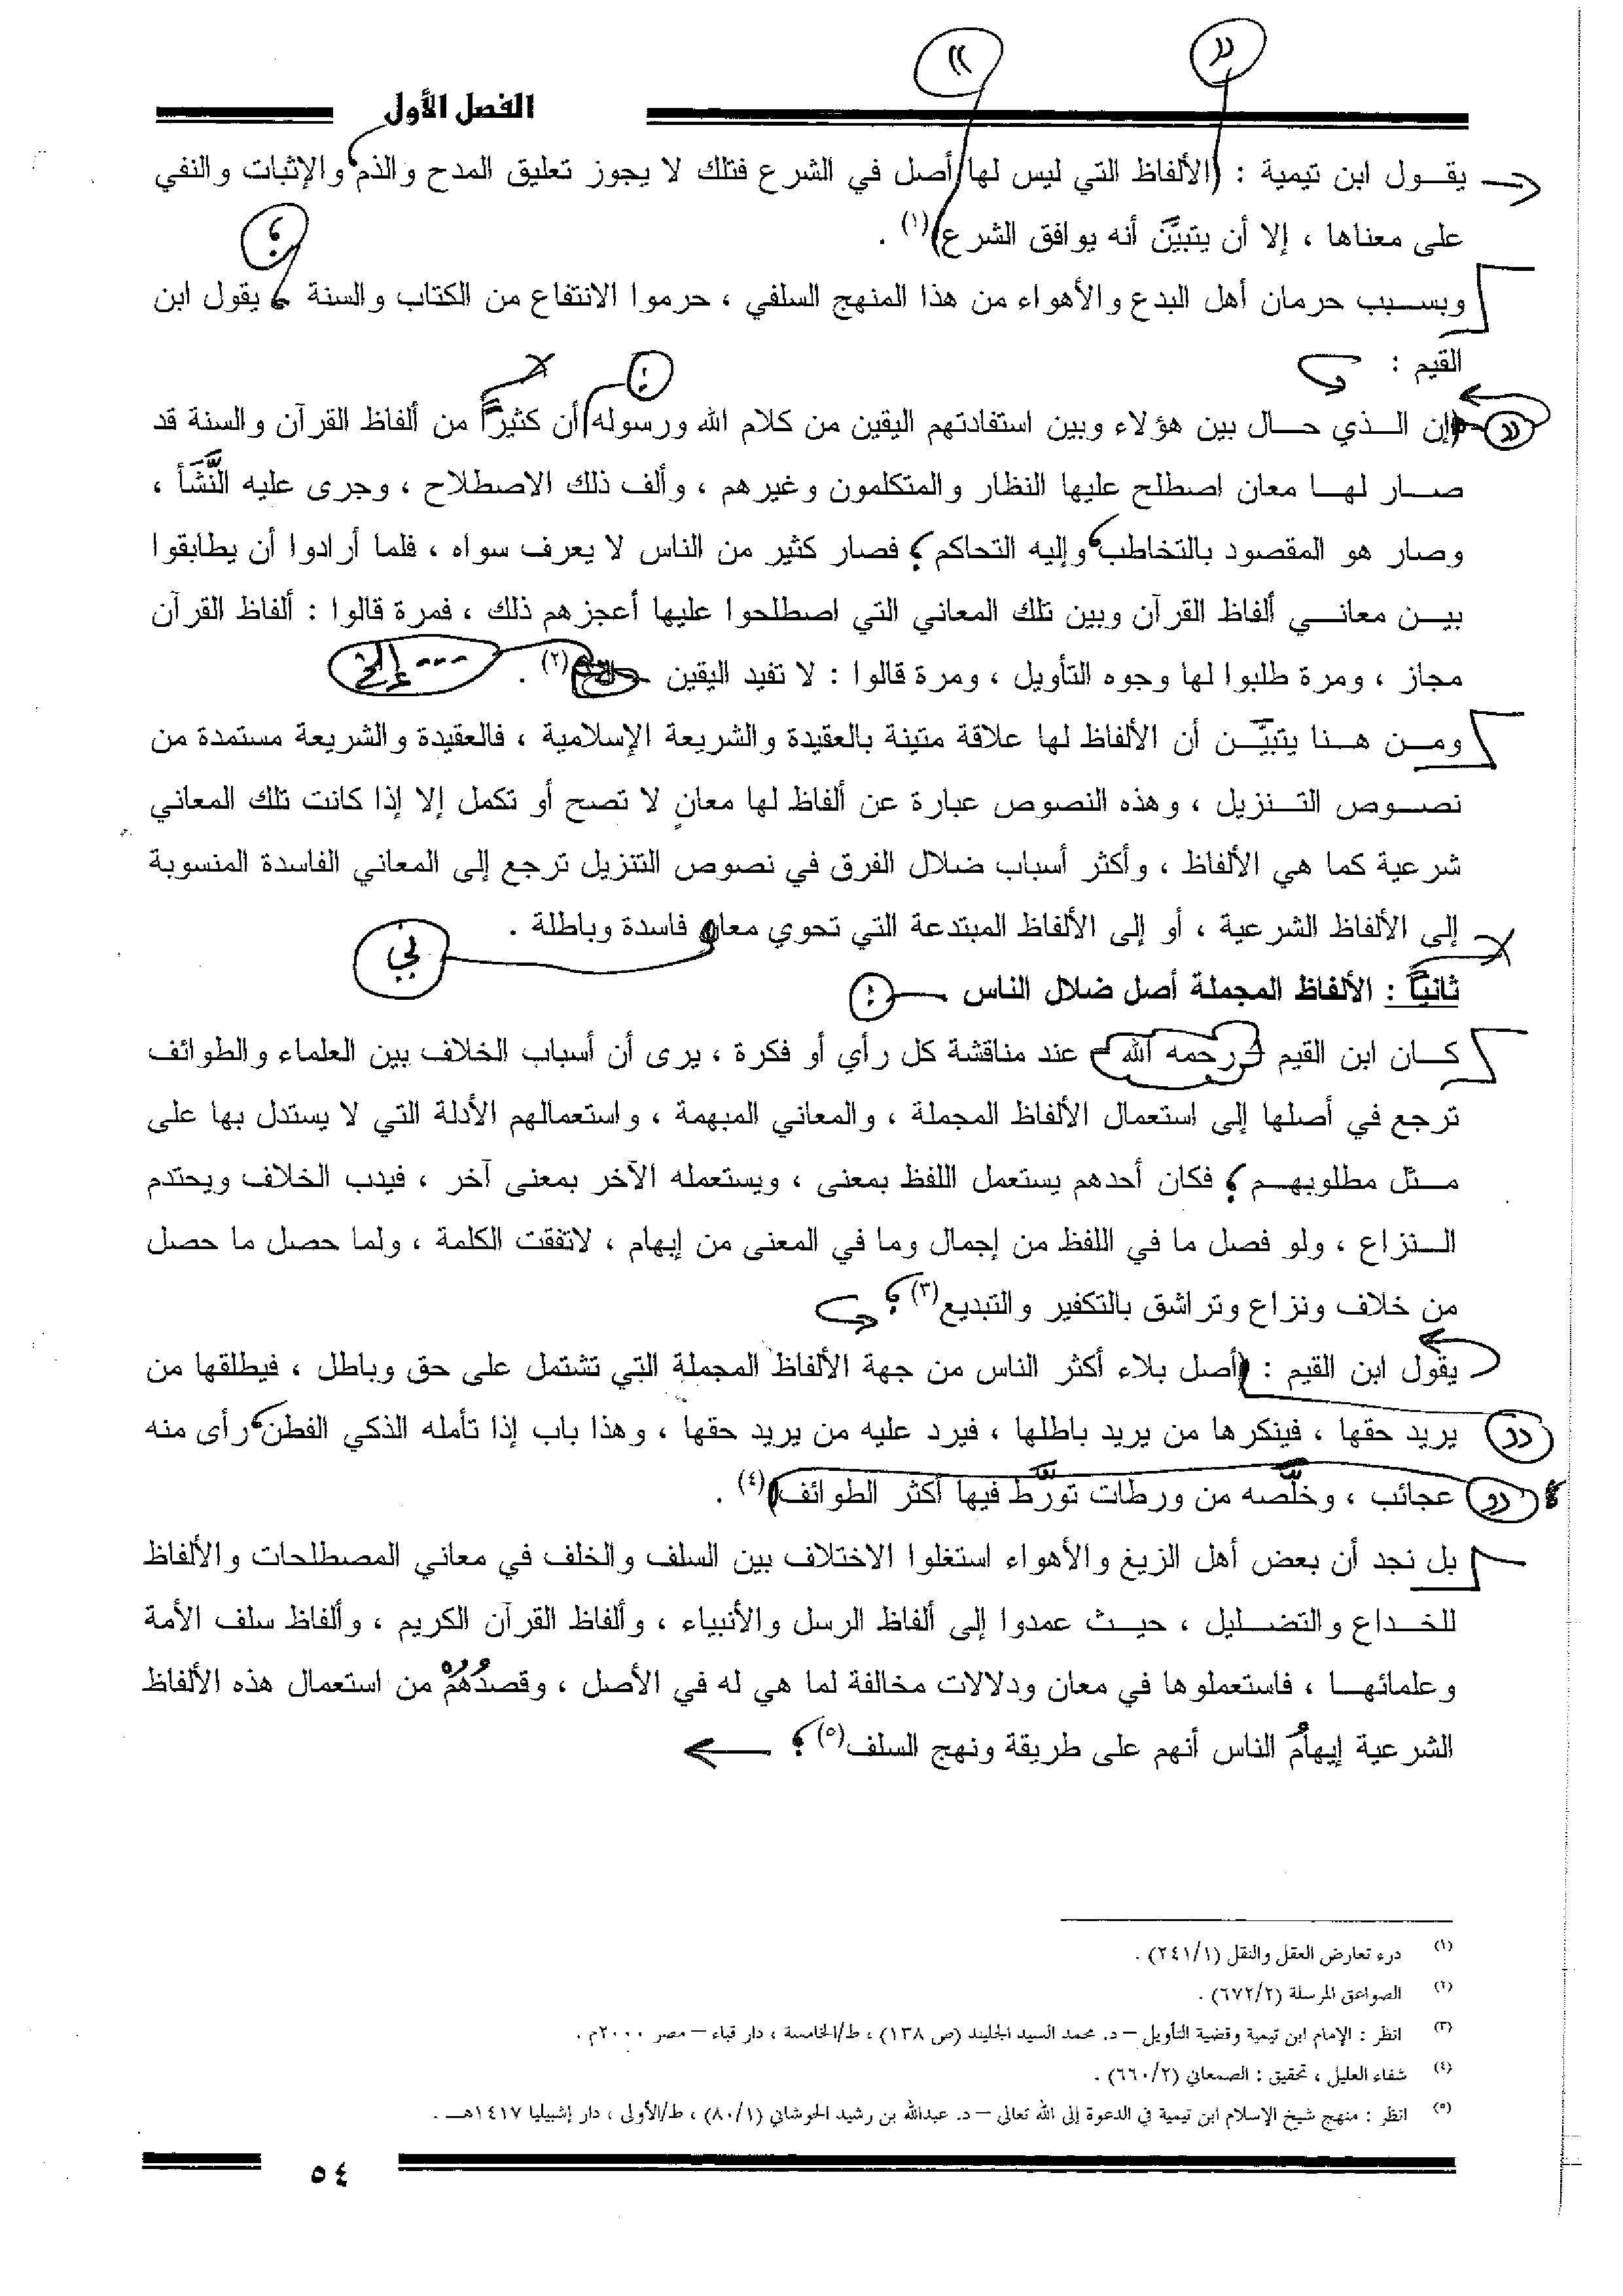 الفصل الأول
يقول ابن تيمية : (الألفاظ التي ليس لها أصل في الشرع فتلك لا يجوز تعليق المدح والذم والإثبات والنفي
على معناها ، إلا أن يتبيَّن أنه يوافق الشرع)(١) .
وبسبب حرمان أهل البدع والأهواء من هذا المنهج السلفي ، حرموا الانتفاع من الكتاب والسنة ، يقول ابن
القيم :
(إن الذي حال بين هؤلاء وبين استفادتهم اليقين من كلام الله ورسوله أن كثيراً من ألفاظ القرآن والسنة قد
صار لها معان اصطلح عليها النظار والمتكلمون وغيرهم ، وألف ذلك الاصطلاح ، وجرى عليه النَّشَأ ،
وصار هو المقصود بالتخاطب وإليه التحاكم ؛ فصار كثير من الناس لا يعرف سواه ، فلما أرادوا أن يطابقوا
بين معاني ألفاظ القرآن وبين تلك المعاني التي اصطلحوا عليها أعجزهم ذلك ، فمرة قالوا : ألفاظ القرآن
مجاز ، ومرة طلبوا لها وجوه التأويل ، ومرة قالوا : لا تفيد اليقين ... إلخ (٢) .
ومن هنا يتبيَّن أن الألفاظ لها علاقة متينة بالعقيدة والشريعة الإسلامية ، فالعقيدة والشريعة مستمدة من
نصوص التنزيل ، وهذه النصوص عبارة عن ألفاظ لها معانٍ لا تصح أو تكمل إلا إذا كانت تلك المعاني
شرعية كما هي الألفاظ ، وأكثر أسباب ضلال الفرق في نصوص التنزيل ترجع إلى المعاني الفاسدة المنسوبة
إلى الألفاظ الشرعية ، أو إلى الألفاظ المبتدعة التي تحوي معان فاسدة وباطلة .
ثانياً : الألفاظ المجملة أصل ضلال الناس :
كان ابن القيم - رحمه الله - عند مناقشة كل رأي أو فكرة ، يرى أن أسباب الخلاف بين العلماء والطوائف
ترجع في أصلها إلى استعمال الألفاظ المجملة ، والمعاني المبهمة ، واستعمالهم الأدلة التي لا يستدل بها على
مثل مطلوبهم ؛ فكان أحدهم يستعمل اللفظ بمعنى ، ويستعمله الآخر بمعنى آخر ، فيدب الخلاف ويحتدم
النزاع ، ولو فصل ما في اللفظ من إجمال وما في المعنى من إبهام ، لاتفقت الكلمة ، ولما حصل ما حصل
من خلاف ونزاع وتراشق بالتكفير والتبديع(٣)
يقول ابن القيم : (أصل بلاء أكثر الناس من جهة الألفاظ المجملة التي تشتمل على حق وباطل ، فيطلقها من
يريد حقها ، فينكرها من يريد باطلها ، فيرد عليه من يريد حقها ، وهذا باب إذا تأمله الذكي الفطن رأى منه
عجائب ، وخلَّصه من ورطات تورَّط فيها أكثر الطوائف)(٤) .
بل نجد أن بعض أهل الزيغ والأهواء استغلوا الاختلاف بين السلف والخلف في معاني المصطلحات والألفاظ
للخداع والتضليل ، حيث عمدوا إلى ألفاظ الرسل والأنبياء ، وألفاظ القرآن الكريم ، وألفاظ سلف الأمة
وعلمائها ، فاستعملوها في معان ودلالات مخالفة لما هي له في الأصل ، وقصدُهُمْ من استعمال هذه الألفاظ
الشرعية إيهامُ الناس أنهم على طريقة ونهج السلف(٥)
(١) درء تعارض العقل والنقل (٢٤١/١) .
(٢) الصواعق المرسلة (٦٧٢/٢) .
(٣) انظر : الإمام ابن تيمية وقضية التأويل – د. محمد السيد الجليند (ص ١٣٨) ، ط/الخامسة ، دار قباء – مصر ٢٠٠٠م .
(٤) شفاء العليل ، تحقيق : الصمعاني (٦٦٠/٢) .
(٥) انظر : منهج شيخ الإسلام ابن تيمية في الدعوة إلى الله تعالى – د. عبدالله بن رشيد الحوشاني (٨٠/١) ، ط/الأولى ، دار إشبيليا ١٤١٧هـ .
٥٤